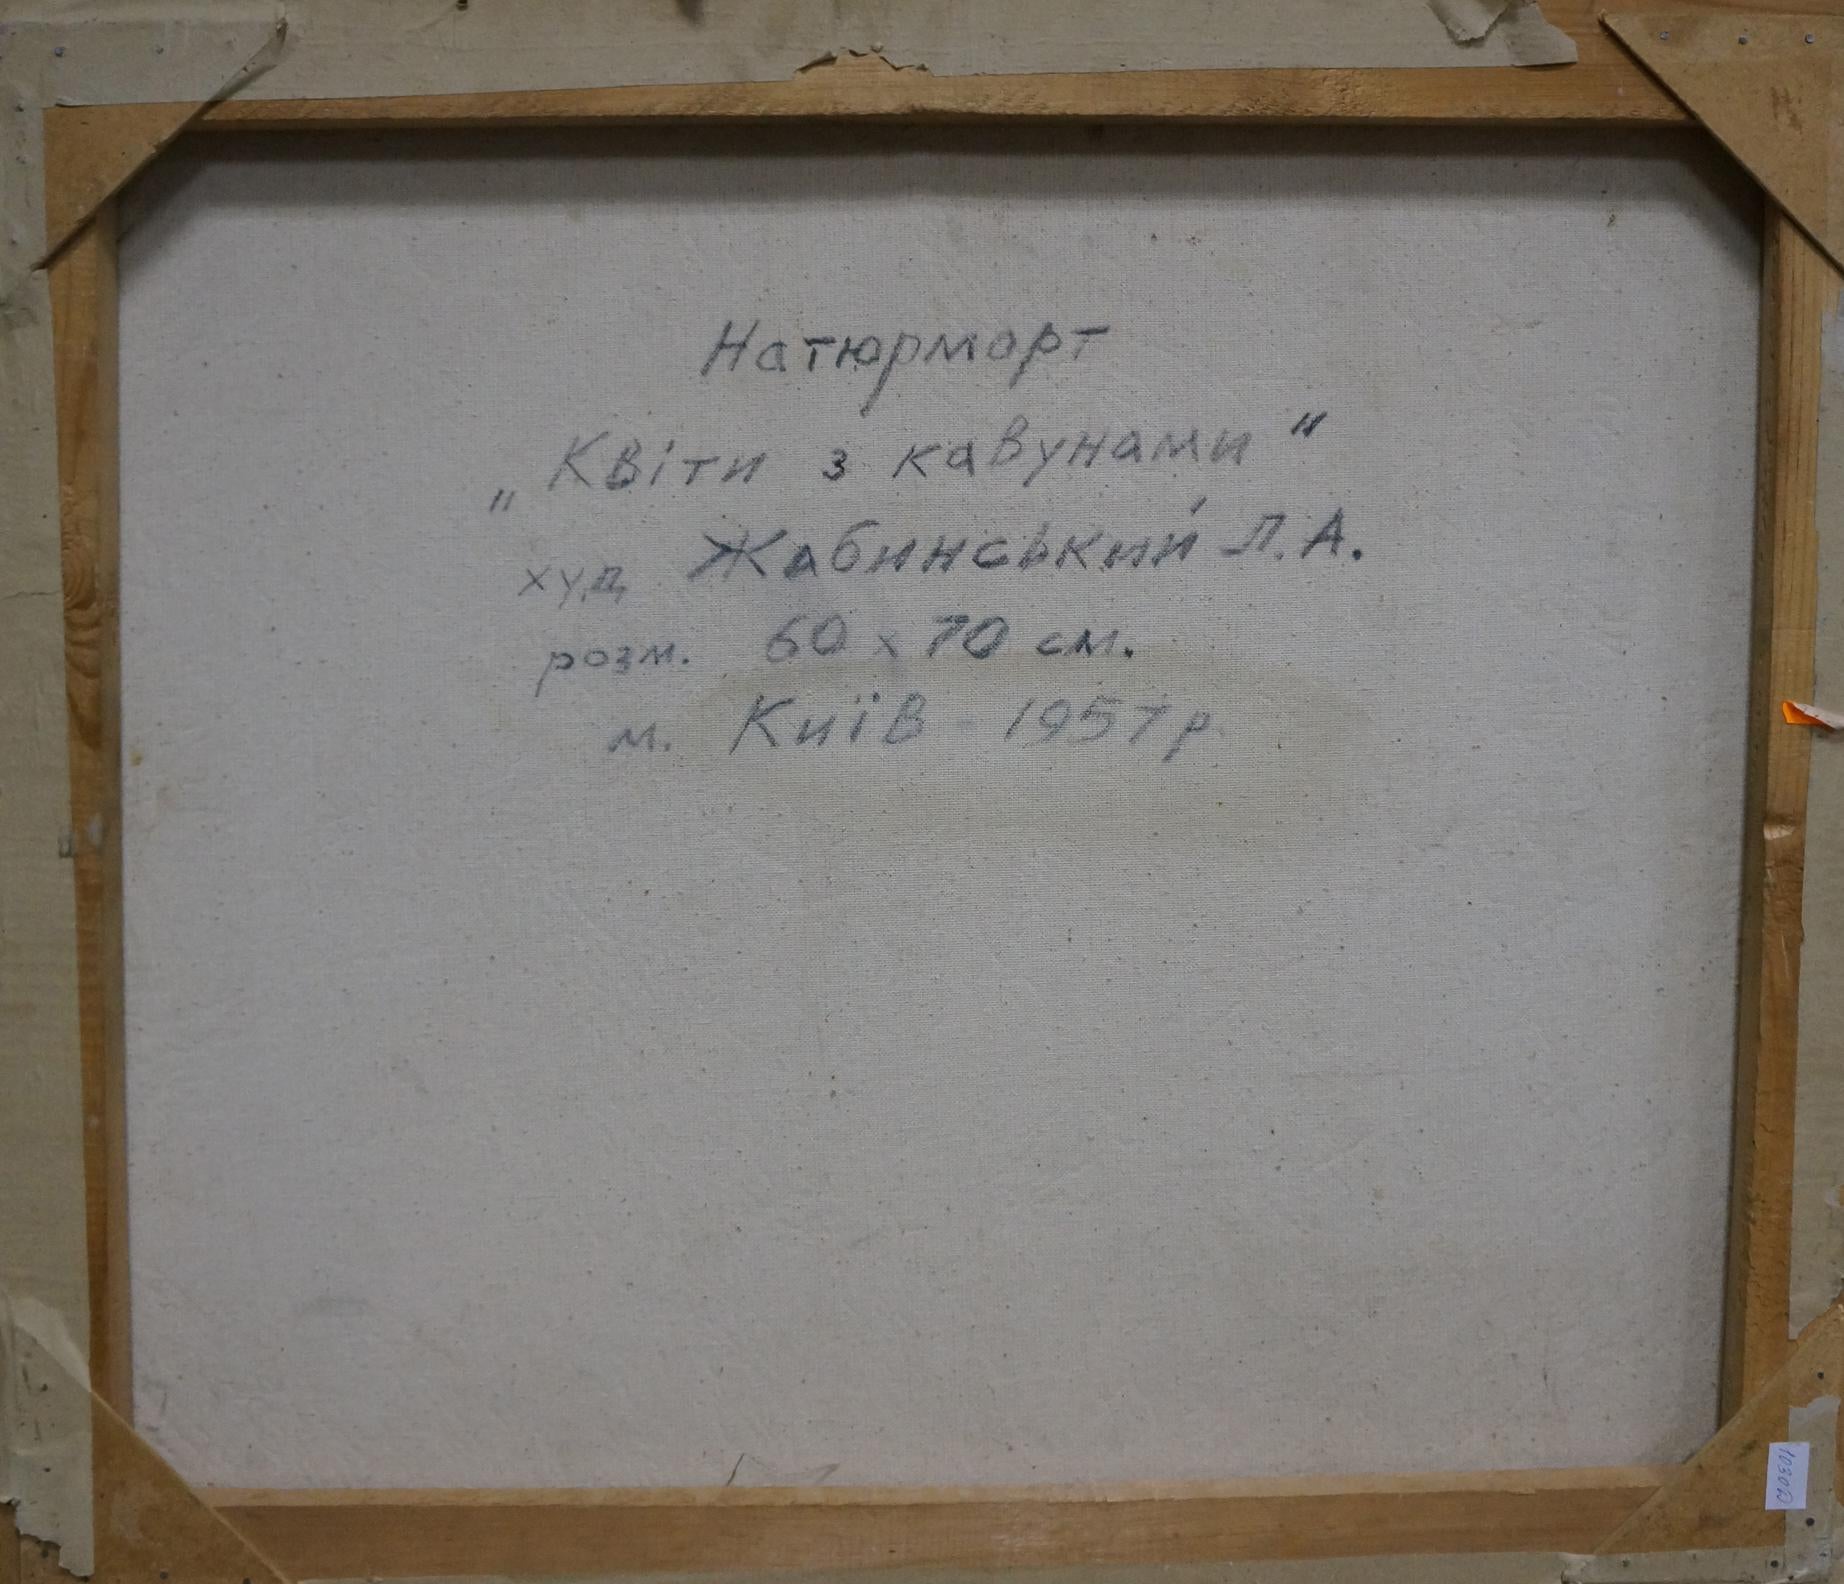 Натюрморт
„Квіти з кавунами"
худ Жабинський Л.А.
розм. 60 x 70 см.
м. Київ - 1957р